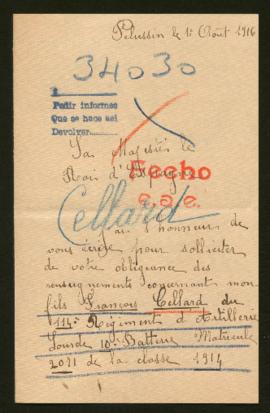 Pélussin le 1r Août 1916
34030
Pedir informes
Que se hace así
Devolver
Sa Majesté le
Roi d'Espagne
Hecho
Cellard
ai l'honneur de
vous écrire pour solliciter
de votre obligeance des
renseignements concernant mon
fils François Cellard du
114e Régiment d'Artillerie
Lourde 10e Batterie Matricule
2021 de la classe 1914